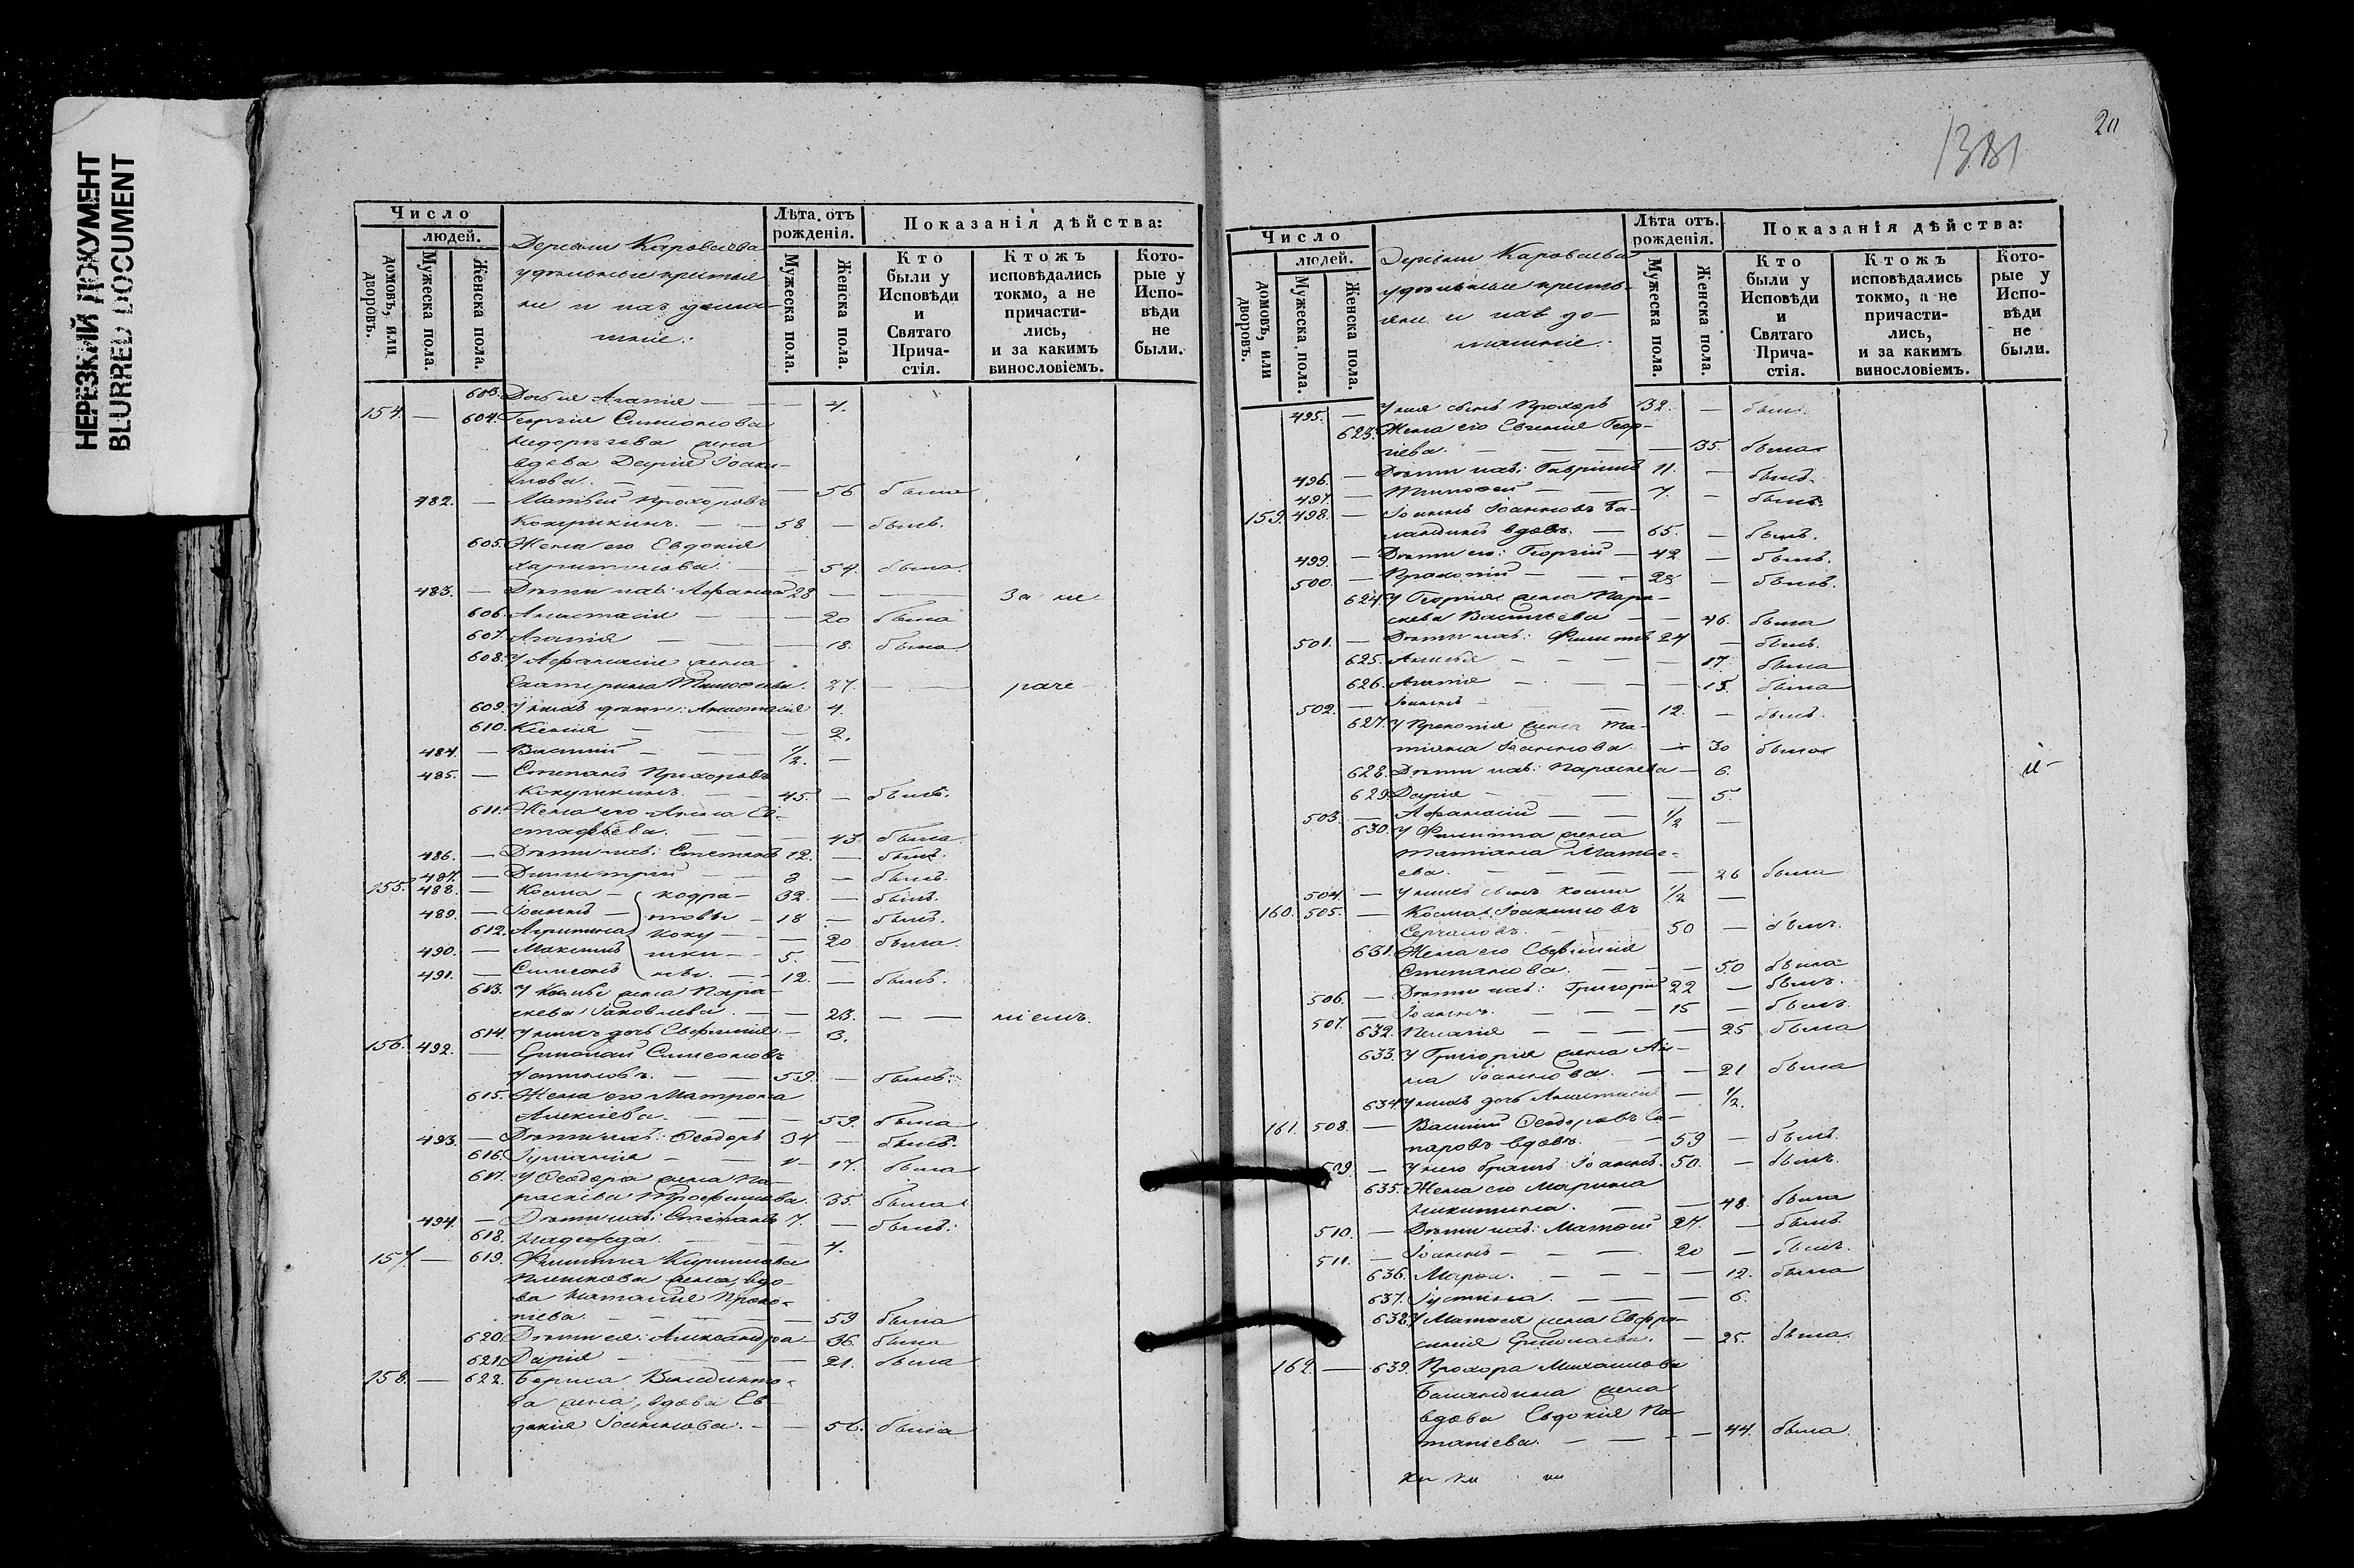 НЕРЕЗКИЙ ДОКУМЕНТ
BLURRED DOCUMENT
Число
людей.
домовъ, или дворовъ.
Мужеска пола.
Женска пола.
Деревни Караваева
удѣльные крестья
не и ихъ домаш
ніе:
Лѣта отъ рожденія.
Мужеска пола.
Женска пола.
Показанія дѣйства:
Кто были у Исповѣди и Святаго Прича-стія.
Ктожъ исповѣдались токмо, а не причасти-лись, и за какимъ винословіемъ.
Кото-рые у Испо-вѣди не были.
603. Дочь ея Агапія — — 4.
154. — 604. Георгія Симіонова
жена
вдова Дарія Іоаки-
мова. — — 56 была
482. — Матѳей Прохоровъ
58 — былъ.
605. Жена его Евдокія
Харитонова. — 54. была.
483. — Дѣти ихъ: Аѳанасій 28 — — За не
606. Анастасія — — 20 была
607. Агапія — — 18. была
608. У Аѳанасія жена
Екатерина Тимоѳеева. 27. — — раче
609. У нихъ дѣти: Анастасія 4.
610. Ксенія — — 2.
484. — Василій — — 1/2. —
485. — Стефанъ Прохоровъ
45. — былъ.
611. Жена его Анна Ев-
стафьева. — — 43 была
486. — Дѣти ихъ: Стефанъ 12. — былъ.
487. — Димитрій — 8 — былъ.
155. 488. — Косма — кодра- 32. — былъ.
489. — Іоаннъ — товы — 18 — былъ.
612. Агрипина коку — — 20 была
490. — Максимъ шки — 5. —
491. — Симеонъ ны. — 12. — былъ.
613. У Космы жена Пара-
скева Іаковлева. — — 23. — — ніемъ.
614. У нихъ дочь Евфимія — 3.
156. 492. — Ермолай Симеоновъ
Устиновъ. — — 59. — былъ.
615. Жена его Матрона
Алексіева. — — 59. была
493. — Дѣти ихъ: Ѳеодоръ 34 — былъ.
616. Іуліанія — — 17. была
617. У Ѳеодора жена Па-
раскева Трофимова. 35. была
494. — Дѣти ихъ: Стефанъ 7. — былъ.
618. Надежда. — — 4.
157. — 619. Филиппа Кириллова
Плешкова жена, вдо-
ва Наталія Проко-
піева. — — 59 была
620. Дѣти ея: Александра — 36. была
621. Дарія — — 21. была
158. — 622. Бориса
ва жена, вдова Ев-
докія Іоаннова. — — 56. была
1381
20
Число
людей.
домовъ, или дворовъ.
Мужеска пола.
Женска пола.
Деревни Караваева
удѣльные кресть-
яне и ихъ до-
машніе.
Лѣта отъ рожденія.
Мужеска пола.
Женска пола.
Показанія дѣйства:
Кто были у Исповѣди и Святаго Прича-стія.
Ктожъ исповѣдались токмо, а не причасти-лись, и за какимъ винословіемъ.
Кото-рые у Испо-вѣди не были.
495. — У нея сынъ Прохоръ 32. — былъ.
623. Жена его Евгенія Геор-
гіева. — — 35. была
496. — Дѣти ихъ: Гавріилъ 11. — былъ.
497. — Тимоѳей — — 7. — былъ.
159. 498. — Іоаннъ Іоанновъ Ба-
ландинъ вдовъ. — 65. — былъ.
499. — Дѣти его: Георгій — 42 — былъ.
500. — Прокопій — — 28 — былъ.
624. У Георгія жена Пара-
скева Васильева — — 46. была
501. — Дѣти ихъ: Филиппъ 24 — былъ.
625. Анисья — — — 17. была
626. Агапія — — — 15. была
502. — Іоаннъ — — 12. — былъ.
627. У Прокопія жена Та-
тіана Іоаннова. — 30 была
628. Дѣти ихъ: Параскева — 6.
629. Дарія — — — 5.
503. — Аѳанасій — — 1/2 —
630. У Филиппа жена
Татіана Матѳе-
ева. — — — 26 была
504. — У нихъ сынъ Косма 1/2 —
160. 505. — Косма Іоакимовъ
50 — былъ.
631. Жена его Евфимія
Степанова. — — 50 была
506. — Дѣти ихъ: Григорій 22 — былъ.
507. — Іоаннъ. — — 15 — былъ.
632. Пелагія — — — 25 была
633. У Григорія жена Ан-
на Іоаннова. — — 21 была
634. У нихъ дочь Анастасія — 1/2.
161. 508. — Василій Ѳеодоровъ Са-
паровъ вдовъ. — 59 — былъ.
509 — У него братъ Іоаннъ. 50. — былъ.
635. Жена его Марина
Никитина. — — 48. была
510. — Дѣти ихъ: Матѳей 27. — былъ
511. — Іоаннъ — — 20 — былъ.
636. Марѳа. — — — 12. была
637. Іустина. — — — 6.
638. У Матѳея жена Евфро-
синія Ермолаева. — 25. была.
162. — 639. Прохора Михаилова
Баландина жена
вдова Евдокія По-
тапіева. — — — 44. была.